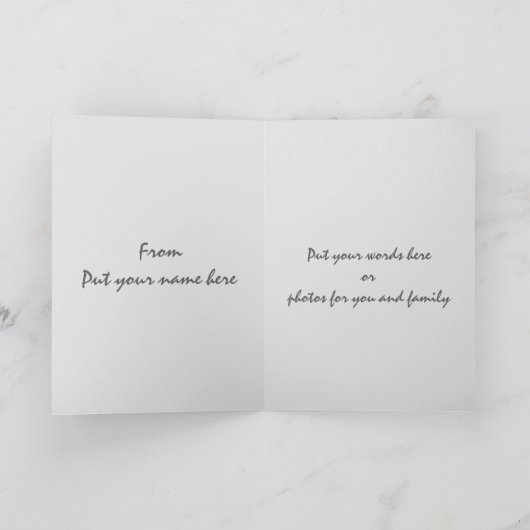 From
Put your name here
Put your words here
or
photos for you and family